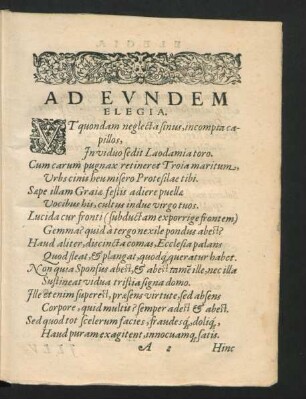 AD EVNDEM
ELEGIA.
VT quondam neglecta sinus, incompta ca-
pillos,
In viduo sedit Laodamia toro.
Cum carum pugnax retineret Troia maritum,
Vrbs cinis heu misero Protesilae tibi.
Sæpe illam Graiæ festis adiere puellæ
Vocibus his, cultus indue virgo tuos.
Lucida cur fronti (subductam exporrige frontem)
Gemma? quid à tergo nexile pondus abest?
Haud aliter, discincta comas, Ecclesia palans
Quod fleat, & plangat, quodq́ queratur habet.
Non quia Sponsus abest, & abest tamē ille, nec illa
Sustineat vidua tristia signa domo.
Ille etenim superest, præsens virtute, sed absens
Corpore, quid multis? semper adest & abest.
Sed quod tot scelerum facies, fraudesq́, doliq́,
Haud puram exagitent, innocuamq́ satis.
A 2 Hinc